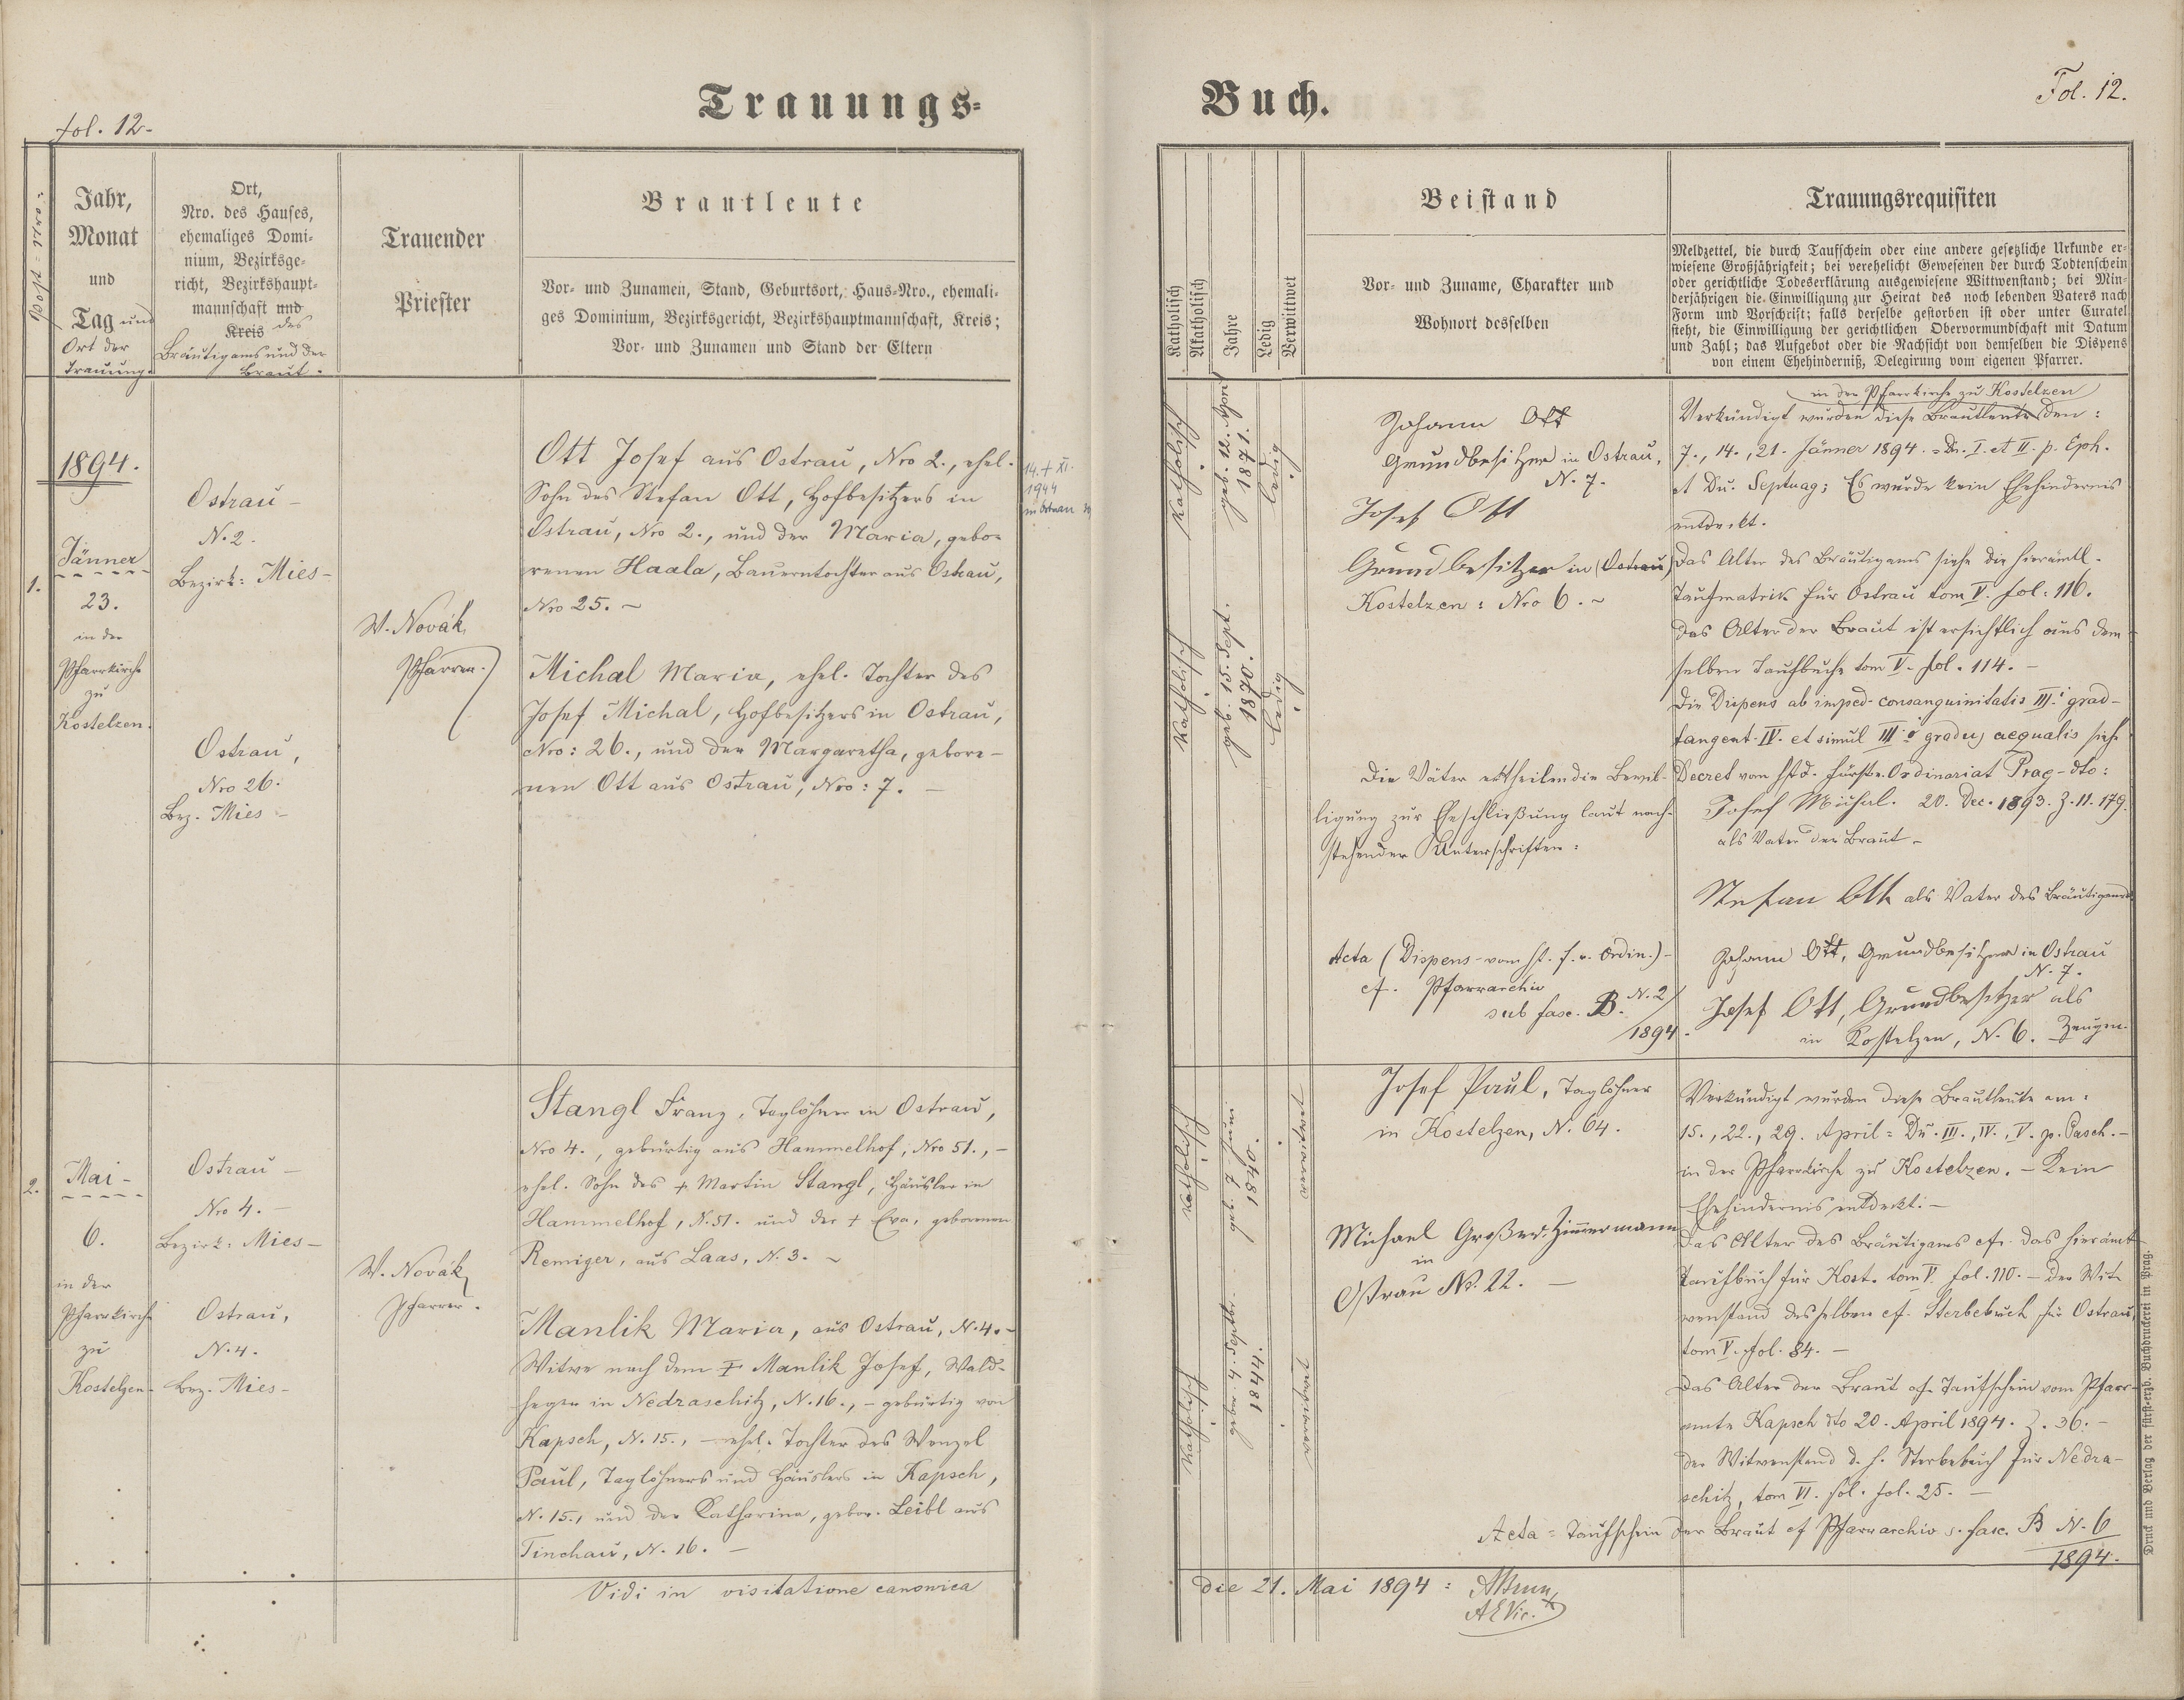 Trauungs-
Buch.
fol. 12-
Fol. 12.
Post-Nro:
Jahr,
Monat
und
Tag und
Ort der
Trauung.
Ort,
Nro. des Hauses,
ehemaliges Domi-
nium, Bezirksge-
richt, Bezirkshaupt-
mannschaft und
Kreis des
Bräutigams und der
Braut.
Trauender
Priester
Brautleute
Vor- und Zunamen, Stand, Geburtsort, Haus-Nro., ehemali-
ges Dominium, Bezirksgericht, Bezirkshauptmannschaft, Kreis;
Vor- und Zunamen und Stand der Eltern
1894.
1.
Jänner
23.
in der
Pfarrkirche
zu
Kostelzen.
Ostrau -
N. 2.
Bezirk: Mies -
Ostrau,
Nro 26.
Bez. Mies -
W. Novák,
Pfarrer.
Ott Josef aus Ostrau, Nro 2., ehel.
Sohn des Stefan Ott, Hofbesitzers in
Ostrau, Nro 2., und der Maria, gebo-
renen Haala, Bauerntochter aus Ostrau,
Nro 25. -
14. + XI.
1944
in Ostrau
Michal Maria, ehel. Tochter des
Josef Michal, Hofbesitzers in Ostrau,
Nro: 26., und der Margaretha, gebore-
nen Ott aus Ostrau, Nro: 7. -
2.
Mai -
6.
in der
Pfarrkirche
zu
Kostelzen -
Ostrau -
Nro 4. -
Bezirk: Mies -
Ostrau,
N. 4.
Bez. Mies -
W. Novák,
Pfarrer.
Stangl Franz, Taglöhner in Ostrau,
Nro 4., gebürtig aus Hammelhof, Nro 51., -
ehel. Sohn des + Martin Stangl, Häusler in
Hammelhof, N. 51. und der + Eva, geborenen
Remiger, aus Laas, N. 3. -
Manlik Maria, aus Ostrau, N. 4. -
Witwe nach dem + Manlik Josef, Wald-
heger in Nedraschitz, N. 16., - gebürtig von
Kapsch, N. 15., - ehel. Tochter des Wenzel
Paul, Taglöhners und Häuslers in Kapsch,
N. 15., und der Catharina, gebor. Leibl aus
Tinchau, N. 16. -
Vidi in visitatione canonica
Katholisch
Akatholisch
Jahre
Ledig
Verwittwet
Beistand
Vor- und Zuname, Charakter und
Wohnort desselben
Trauungsrequisiten
Meldzettel, die durch Taufschein oder eine andere gesetzliche Urkunde er-
wiesene Großjährigkeit; bei verehelicht Gewesenen der durch Todtenschein
oder gerichtliche Todeserklärung ausgewiesene Wittwenstand; bei Min-
derjährigen die Einwilligung zur Heirat des noch lebenden Vaters nach
Form und Vorschrift; falls derselbe gestorben ist oder unter Curatel
steht, die Einwilligung der gerichtlichen Obervormundschaft mit Datum
und Zahl; das Aufgebot oder die Nachsicht von demselben die Dispens
von einem Ehehinderniß, Delegirung vom eigenen Pfarrer.
Katholisch
geb. 12. April
1871.
ledig
Katholisch
geb. 15. Sept.
1870.
ledig
Johann Ott
Grundbesitzer in Ostrau,
N. 7.
Josef Ott
Grundbesitzer in (Ostrau)
Kostelzen: Nro 6. -
Die Väter ertheilen die Bewil-
ligung zur Eheschließung laut nach-
stehender Unterschriften:
Acta (Dispens - vom h. f. e. Ordin.) -
cf. Pfarrarchiv
sub fasc. B. N. 2/
1894.
in der Pfarrkirche zu Kostelzen
Verkündigt wurden diese Brautleute den:
7., 14., 21. Jänner 1894. = Du. I. et II. p. Eph.
et Du. Septuag; Es wurde kein Ehehindernis
entdeckt.
Das Alter des Bräutigams siehe die hierämtl.
Taufmatrik für Ostrau tom V. fol. 116.
Das Alter der Braut ist ersichtlich aus dem-
selben Taufbuche tom V. fol. 114. -
Die Dispens ab imped. consanguinitatis III. grad-
tangent. IV. et simul III. gradus aequalis siehe
Decret vom Ordinariat Prag - dto:
20. Dec. 1893. Z. 11.179.
Josef Michal.
als Vater der Braut -
Stefan Ott als Vater des Bräutigams
Johann Ott, Grundbesitzer in Ostrau
N. 7.
Josef Ott, Grundbesitzer als
in Kostelzen, N. 6. Zeugen.
Katholisch
geb. 7. Juni
1840.
verwitwet
Katholisch
gebor. 4. Septbr.
1844.
verwitwet
Josef Paul, Taglöhner
in Kostelzen, N. 64.
Michael Großer Zimmermann
in
Ostrau No. 22. -
Verkündigt wurden diese Brautleute am:
15., 22., 29. April = Du. III., IV., V. p. Pasch. -
in der Pfarrkirche zu Kostelzen. - Kein
Ehehindernis entdeckt. -
Das Alter des Bräutigams cfr. das hierämt.
Taufbuch für Kost. tom V. fol. 110. - Der Wit-
wenstand desselben cf. Sterbebuch für Ostrau,
tom V. fol. 84. -
Das Alter der Braut cfr. Taufschein vom Pfarr-
amte Kapsch dto 20. April 1894. Z. 36. -
Der Witwenstand d. h. Sterbebuch für Nedra-
schitz, tom VI. fol. 25. -
Acta = Taufschein der Braut cf Pfarrarchiv s. fasc. B N. 6
1894.
die 21. Mai 1894:
AEVic.
Druck und Verlag der fürst-erzb. Buchdruckerei in Prag.